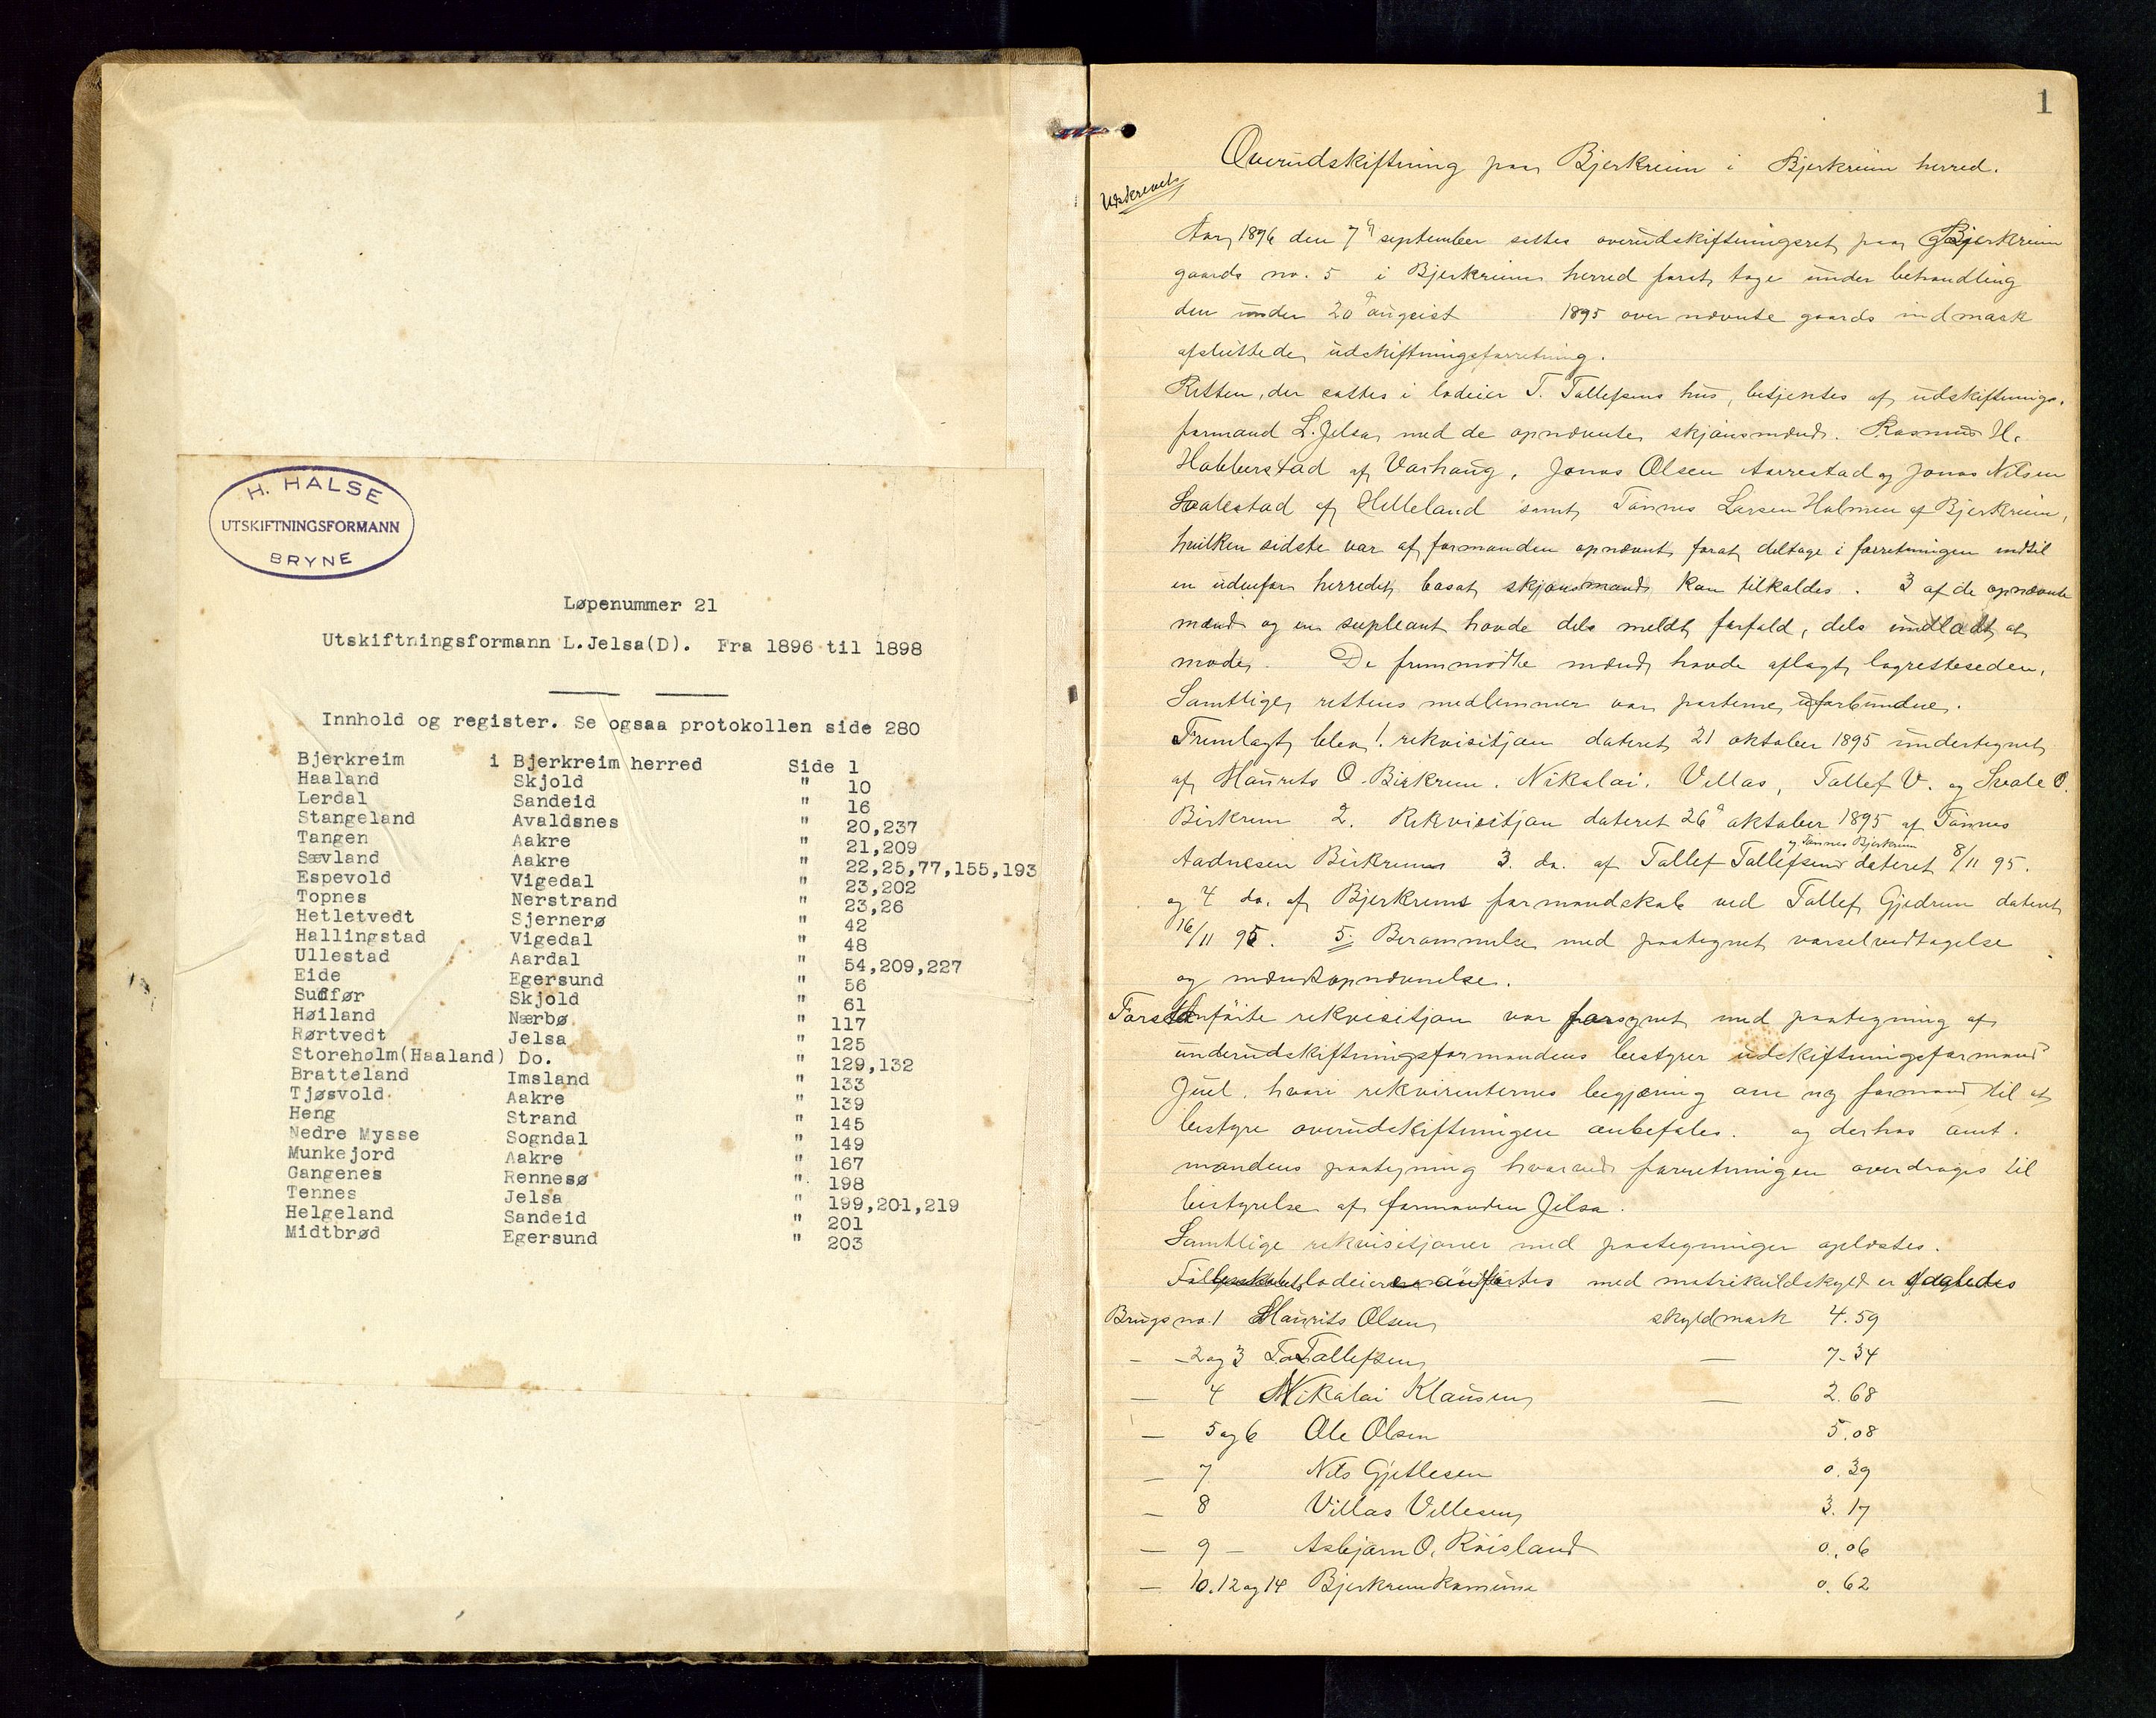 H. HALSE
UTSKIFTNINGSFORMANN
BRYNE
Løpenummer 21
Utskiftningsformann L.Jelsa(D). Fra 1896 til 1898
Innhold og register. Se ogsaa protokollen side 280
Bjerkreim i Bjerkreim herred Side 1
Haaland Skjold " 10
Lerdal Sandeid " 16
Stangeland Avaldsnes " 20,237
Tangen Aakre " 21,209
Sævland Aakre " 22,25,77,155,193
Espevold Vigedal " 23,202
Topnes Nerstrand " 23,26
Hetletvedt Sjernerø " 42
Hallingstad Vigedal " 48
Ullestad Aardal " 54,209,227
Eide Egersund " 56
Sudfør Skjold " 61
Høiland Nærbø " 117
Rørtvedt Jelsa " 125
Storeholm(Haaland) Do. " 129,132
Bratteland Imsland " 133
Tjøsvold Aakre " 139
Heng Strand " 145
Nedre Mysse Sogndal " 149
Munkejord Aakre " 167
Gangenes Rennesø " 198
Tennes Jelsa " 199,201,219
Helgeland Sandeid " 201
Midtbrød Egersund " 203
1
Overudskiftning paa Bjerkreim i Bjerkreim herred.
Udskrevet
Aar 1896 den 7de september sattes overudskiftningsret paa Bjerkreim
gaards no. 5 i Bjerkreim herred forat tage under behandling
den under 20de august 1895 over nævnte gaards indmark
afsluttede udskiftningsforretning.
Retten, der sattes i lodeier T. Tollefsens hus, betjentes af udskiftnings-
formand L. Jelsa med de opnævnte skjønsmænd. Rasmus H.
Hobberstad af Varhaug, Jonas Olsen Aarrestad og Jonas Nilsen
Svalestad af Helleland samt Tønnes Larsen Holmen af Bjerkreim,
hvilken sidste var af formanden opnævnt forat deltage i forretningen indtil
en udenfor herredet bosat skjønsmand kan tilkaldes. 3 af de opnævnte
mænd og en supleant havde dels meldt forfald, dels undladt at
møde. De fremmødte mænd havde aflagt lagretteseden.
Samtlige rettens medlemmer var parterne uforbundne.
Fremlagt blev 1. rekvisitjon dateret 21 oktober 1895 undertegnet
af Maurits O. Birkrem. Nikolai. Villas, Tollef V. og Svale O.
Birkrem 2. Rekvisitjon dateret 26de oktober 1895 af Tønnes
og Tønnes Bjerkreim
Aadnesen Birkrem 3. do. af Tollef Tollefsen dateret 8/11 95.
og 4 do. af Bjerkrems formandskab ved Tollef Gjedrem dateret
16/11 95. 5. Berammelse med paategnet varselvedtagelse
og mændsopnævnelse.
Førstanførte rekvisitjon var forsynet med paategning af
underudskiftningsformandens bestyrer udskiftningsformand
Juel, hvori rekvirenternes begjæring om ny formand til at
bestyre overudskiftningen anbefales. og derhos amt-
mandens paategning hvorved forretningen overdrages til
bestyrelse af formanden Jelsa.
Samtlige rekvisitjoner med paategninger oplæstes.
lodeiere med matrikulskyld er
Brugs no. 1 Maurits Olsen skyldmark 4.59
— - 2 og 3 T. Tollefsen — 7-34
— 4 Nikolai Klausen — 2.68
— 5 og 6 Ole Olsen 5.08
— 7 Nils Gjetlesen 0.39
— 8 Villas Villesen 3.17
— 9 — Asbjørn O. Røisland 0.06
— 10.12 og 14 Bjerkrem Komune 0.62